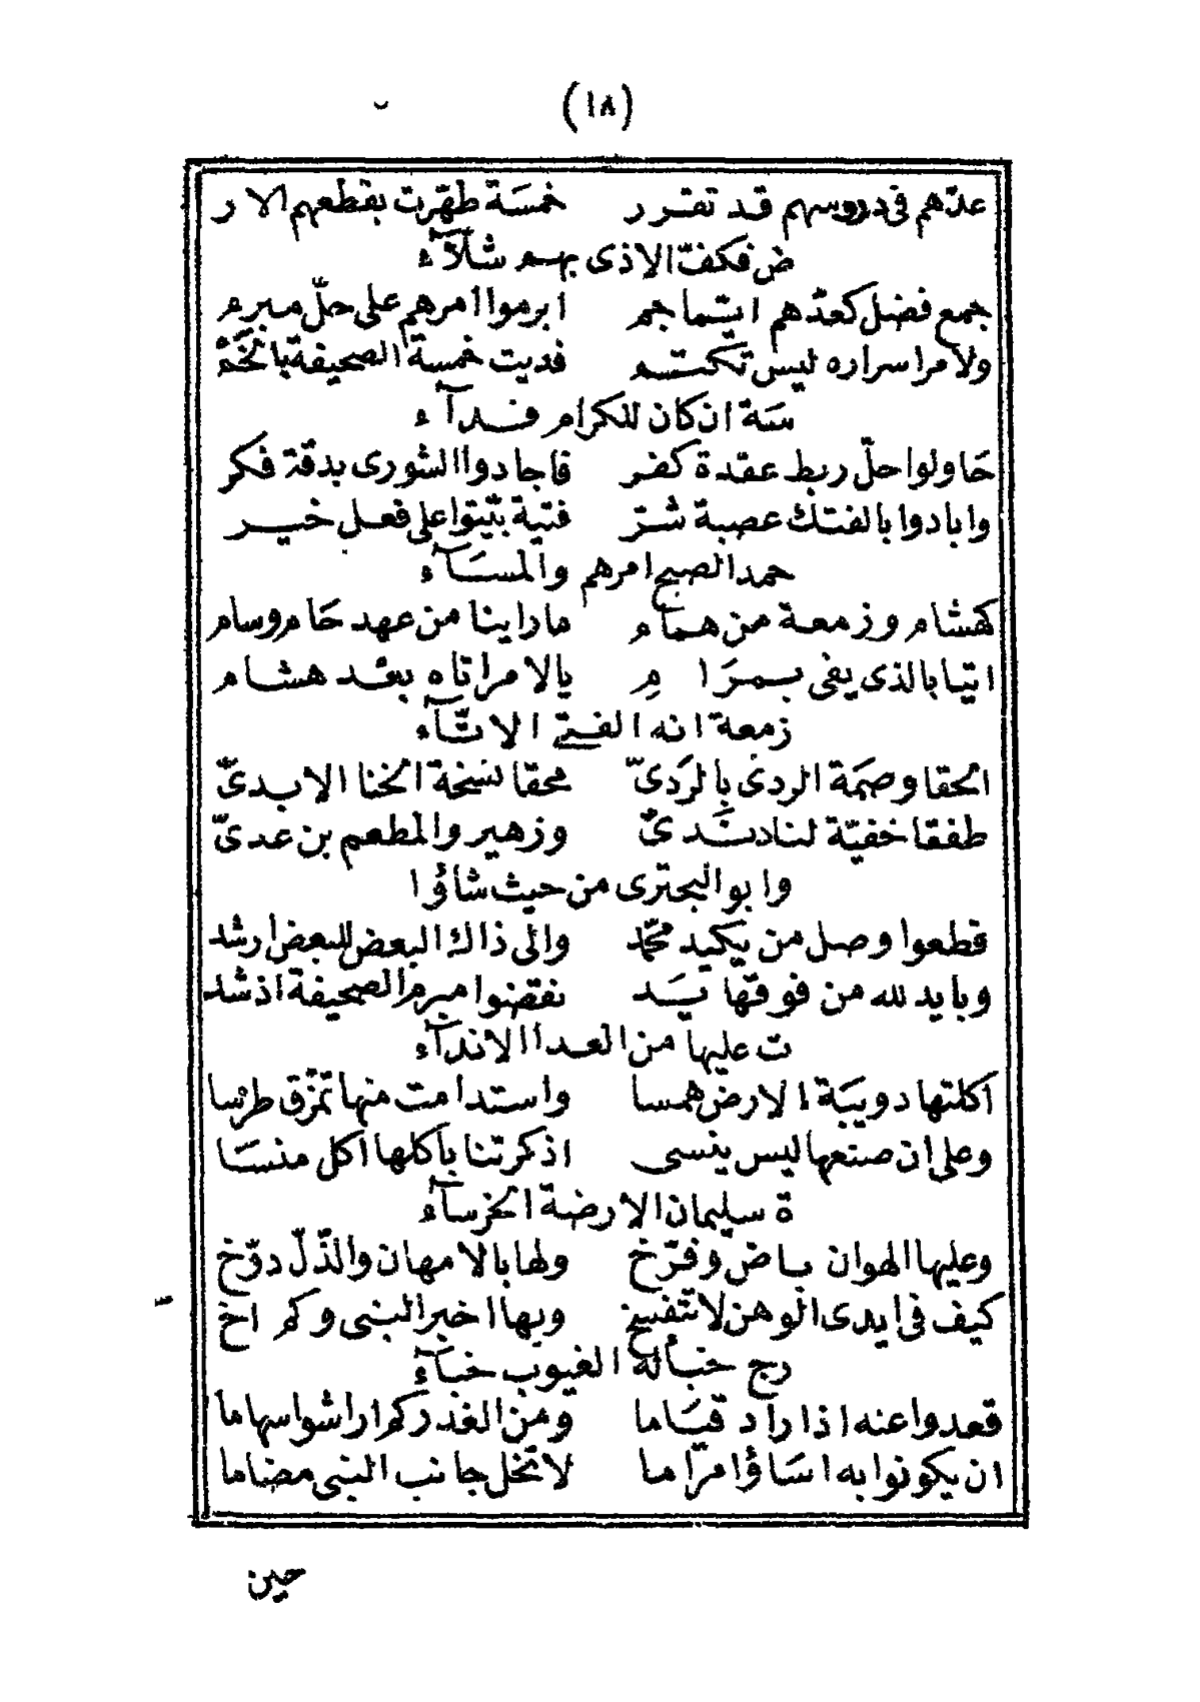 (١٨)
عدّهم فى دروسهم قد تقرر خمسَة طهّرت بقطعهم الار
ض فكفّ الاذى بهم شلّآء
جمع فضل كعدّهم ايّتما جم ابرموا امرهم على حلّ مبرم
ولامر اسراره ليس تكتم فديت خمسة الصحيفة بالخَمْ
سَة ان كان للكرام فدآء
حَاولوا حلّ ربط عقدة كفر قاجادوا الشورى بدقّة فكر
وابادوا بالفتك عصبة شرّ فتية بيّتوا على فعل خير
حمد الصبح امرهم والمسَآء
كهشام وزمعة من همام ما راينا من عهد حَام وسام
اتيا بالذى يفى بمرَا مِ يالامر اتاه بعْد هشام
زمعة انه الفتى الاتّآء
الحقا وصَمَة الردى بالرَدىّ محقا نسْخة الخنا الابدىّ
طفقا خفيّة لناد نَدىّ وزهير والمطعم بن عدىّ
وابو البحترى من حيث شاؤا
قطعوا وصل من يكيد محمّد والى ذاك البعض للبعض ارشد
وبايد لله من فوقها يَد نقضوا مبرم الصحيفة اذ شد
ت عليها من العدا الاندآء
اكلتها دويبَة الارض همسا واستدامت منها تمزّق طرسا
وعلى ان صنعها ليس ينسى اذكرتنا باكلها اكل منسَا
ة سليمان الارضة الخرسآء
وعليها الهوان باض وفرّخ ولها بالامهان والذّلّ دوّخ
كيف فى ايدى الوهن لا تتفسخ وبها اخبر النبى وكم اخ
رج خبأ له الغيوب خبَآء
قعدوا عنه اذ اراد قيَاما ومن الغدر كم اراشوا سهاما
ان يكونوا به اسَاؤا مرَاما لا تخل جانب النبى مضاما
حين